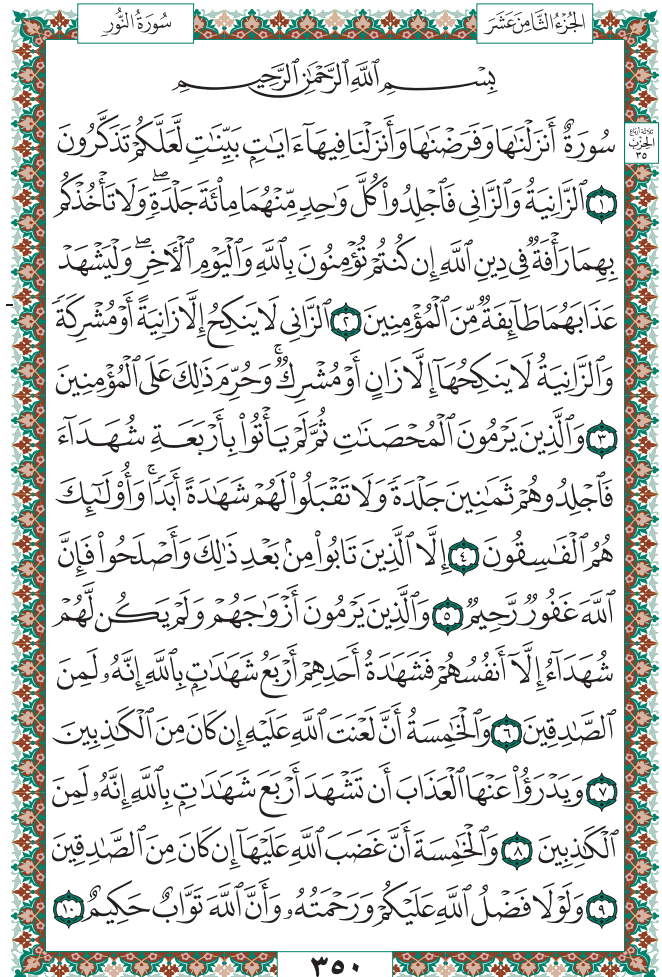 الجُزْءُ الثَّامِنَ عَشَرَ
سُورَةُ النُّورِ
بِسْمِ ٱللَّهِ ٱلرَّحْمَٰنِ ٱلرَّحِيمِ
سُورَةٌ أَنزَلْنَٰهَا وَفَرَضْنَٰهَا وَأَنزَلْنَا فِيهَآ ءَايَٰتٍۭ بَيِّنَٰتٍ لَّعَلَّكُمْ تَذَكَّرُونَ
ثلاثة أرباع
الحِزْب
٣٥
١ ٱلزَّانِيَةُ وَٱلزَّانِى فَٱجْلِدُوا۟ كُلَّ وَٰحِدٍ مِّنْهُمَا مِا۟ئَةَ جَلْدَةٍۖ وَلَا تَأْخُذْكُم
بِهِمَا رَأْفَةٌ فِى دِينِ ٱللَّهِ إِن كُنتُمْ تُؤْمِنُونَ بِٱللَّهِ وَٱلْيَوْمِ ٱلْءَاخِرِۖ وَلْيَشْهَدْ
عَذَابَهُمَا طَآئِفَةٌ مِّنَ ٱلْمُؤْمِنِينَ ٢ ٱلزَّانِى لَا يَنكِحُ إِلَّا زَانِيَةً أَوْ مُشْرِكَةً
وَٱلزَّانِيَةُ لَا يَنكِحُهَآ إِلَّا زَانٍ أَوْ مُشْرِكٌۚ وَحُرِّمَ ذَٰلِكَ عَلَى ٱلْمُؤْمِنِينَ
٣ وَٱلَّذِينَ يَرْمُونَ ٱلْمُحْصَنَٰتِ ثُمَّ لَمْ يَأْتُوا۟ بِأَرْبَعَةِ شُهَدَآءَ
فَٱجْلِدُوهُمْ ثَمَٰنِينَ جَلْدَةً وَلَا تَقْبَلُوا۟ لَهُمْ شَهَٰدَةً أَبَدًاۚ وَأُو۟لَٰٓئِكَ
هُمُ ٱلْفَٰسِقُونَ ٤ إِلَّا ٱلَّذِينَ تَابُوا۟ مِنۢ بَعْدِ ذَٰلِكَ وَأَصْلَحُوا۟ فَإِنَّ
ٱللَّهَ غَفُورٌ رَّحِيمٌ ٥ وَٱلَّذِينَ يَرْمُونَ أَزْوَٰجَهُمْ وَلَمْ يَكُن لَّهُمْ
شُهَدَآءُ إِلَّآ أَنفُسُهُمْ فَشَهَٰدَةُ أَحَدِهِمْ أَرْبَعُ شَهَٰدَٰتٍۭ بِٱللَّهِ إِنَّهُۥ لَمِنَ
ٱلصَّٰدِقِينَ ٦ وَٱلْخَٰمِسَةُ أَنَّ لَعْنَتَ ٱللَّهِ عَلَيْهِ إِن كَانَ مِنَ ٱلْكَٰذِبِينَ
٧ وَيَدْرَؤُا۟ عَنْهَا ٱلْعَذَابَ أَن تَشْهَدَ أَرْبَعَ شَهَٰدَٰتٍۭ بِٱللَّهِ إِنَّهُۥ لَمِنَ
ٱلْكَٰذِبِينَ ٨ وَٱلْخَٰمِسَةَ أَنَّ غَضَبَ ٱللَّهِ عَلَيْهَآ إِن كَانَ مِنَ ٱلصَّٰدِقِينَ
٩ وَلَوْلَا فَضْلُ ٱللَّهِ عَلَيْكُمْ وَرَحْمَتُهُۥ وَأَنَّ ٱللَّهَ تَوَّابٌ حَكِيمٌ ١٠
٣٥٠